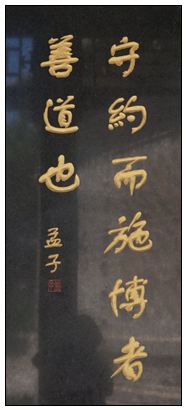 守約而施博者
善道也
孟子